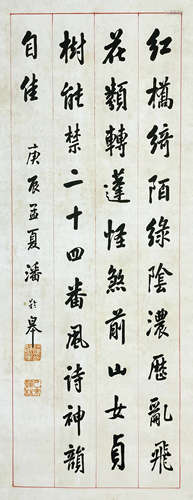 紅橋綺陌綠陰濃歷亂飛
花類轉蓬怪煞前山女貞
樹能禁二十四番風诗神韻
自佳
庚辰孟夏潘齡皋